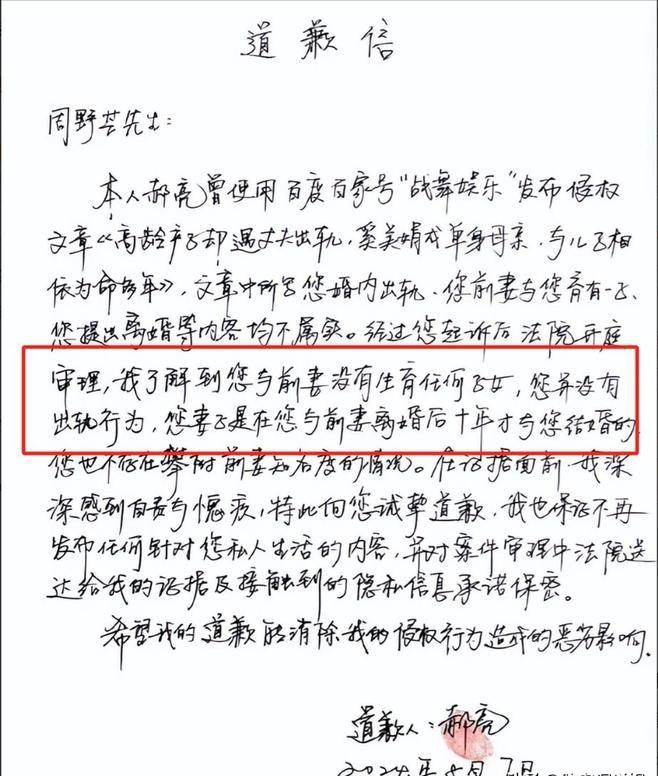 道歉信
周野芒先生：
本人郝亮曾使用百度百家号"战舞娱乐"发布侵权
文章《高龄产子却遇丈夫出轨，奚美娟成单身母亲，与儿子相
依为命多年》，文章中所写您婚内出轨、您前妻与您育有一子、
您提出离婚等内容均不属实。经过您起诉后法院开庭
审理，我了解到您与前妻没有生育任何子女，您并没有
出轨行为，您妻子是在您与前妻离婚后十年才与您结婚的，
您也不存在攀附前妻知名度的情况。在证据面前，我深
深感到自责与愧疚，特此向您诚挚道歉，我也保证不再
发布任何针对您私人生活的内容，并对案件审理中法院送
达给我的证据及接触到的隐私信息承诺保密。
希望我的道歉能消除我的侵权行为造成的恶劣影响。
道歉人：郝亮
2024年8月7日